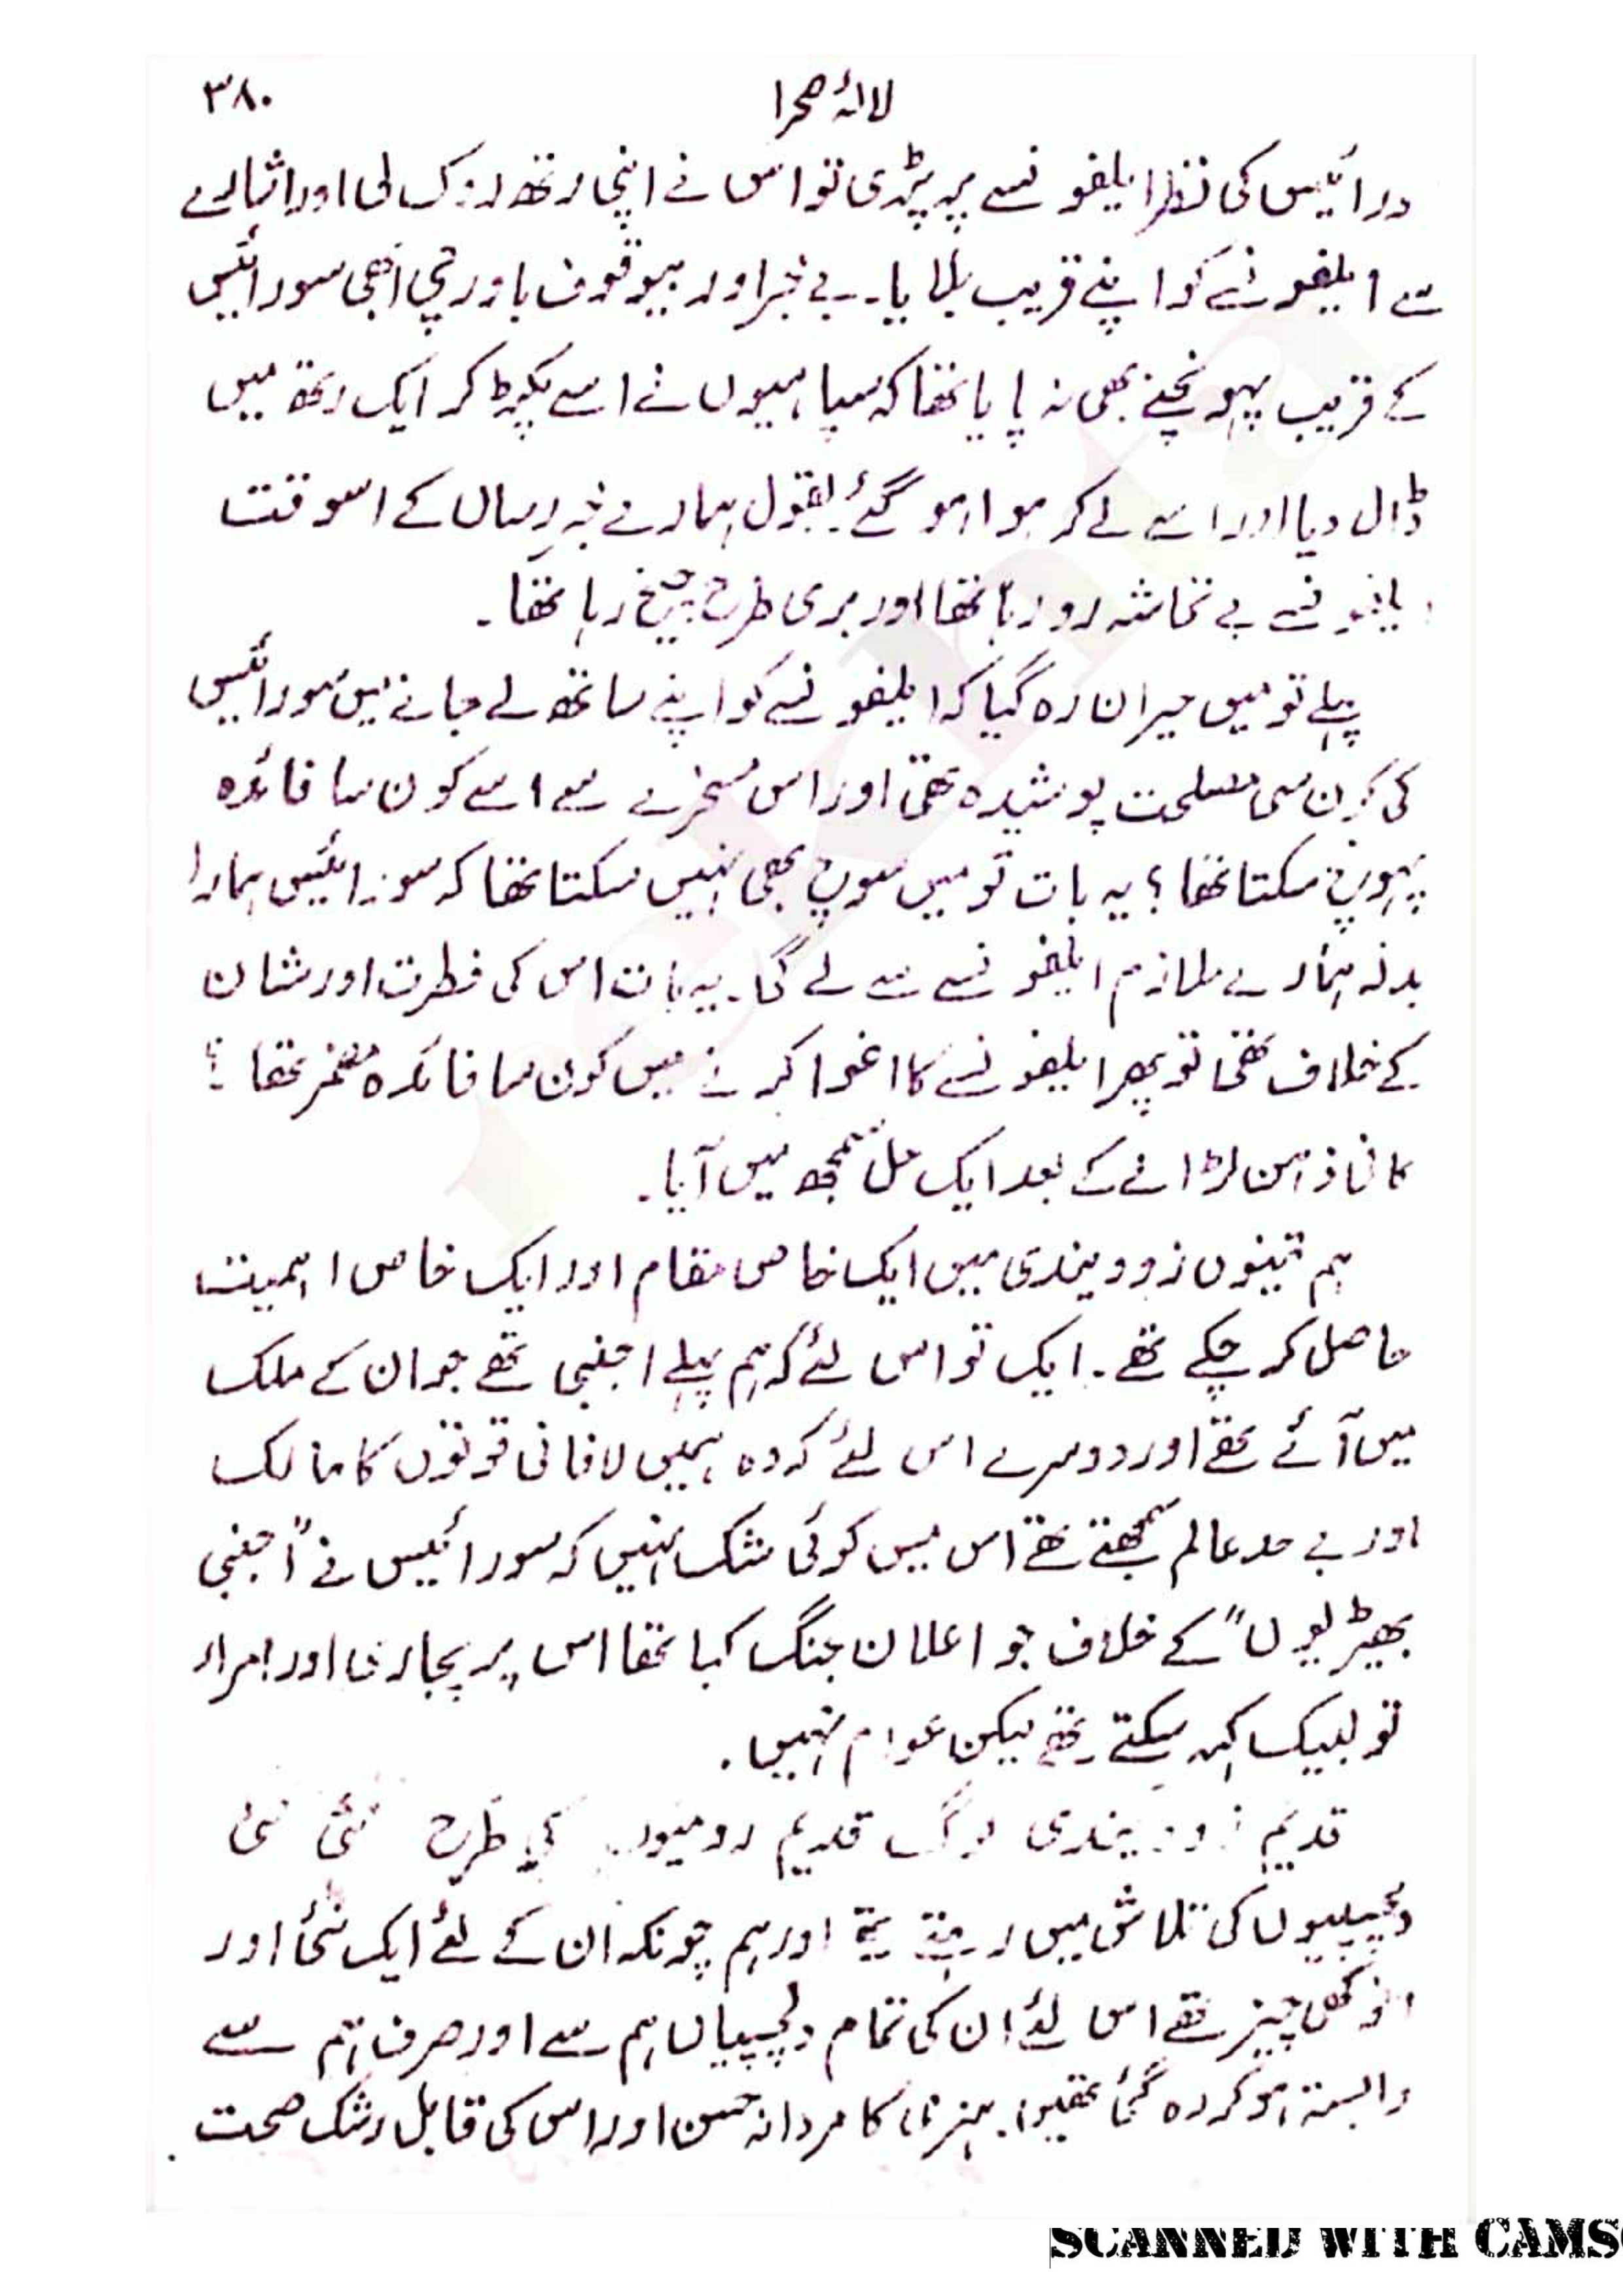 لالۂ صحرا ۳۸۰
ورائیس کی نظر ایلفونسے پر پڑی تو اس نے اپنی رتھ روک لی اور اشارے
سے ایلفونسے کو اپنے قریب بلایا۔ بے خبر اور بیوقوف باورچی ابھی سورائیس
کے قریب پہونچنے بھی نہ پایا تھا کہ سپاہیوں نے اسے پکڑ کر ایک رتھ میں
ڈال دیا اور اسے لے کر ہوا ہو گئے۔ بقول ہمارے خبر رساں کے اسوقت
ایلفونسے بے تحاشہ رو رہا تھا اور بری طرح چیخ رہا تھا۔
پہلے تو میں حیران رہ گیا کہ ایلفونسے کو اپنے ساتھ لے جانے میں سورائیس
کی کون سی مصلحت پوشیدہ تھی اور اس مسخرے سے اسے کون سا فائدہ
پہونچ سکتا تھا؟ یہ بات تو میں سوچ بھی نہیں سکتا تھا کہ سورائیس ہمارا
بدلہ ہمارے ملازم ایلفونسے سے لے گا۔ یہ بات اس کی فطرت اور شان
کے خلاف تھی تو پھر ایلفونسے کا اغوا کرنے میں کون سا فائدہ مضمر تھا؟
کافی ذہن لڑانے کے بعد ایک حل سمجھ میں آیا۔
ہم تینوں زوویندی میں ایک خاص مقام اور ایک خاص اہمیت
حاصل کر چکے تھے۔ ایک تو اس لئے کہ ہم پہلے اجنبی تھے جو ان کے ملک
میں آئے تھے اور دوسرے اس لئے کہ وہ ہمیں لافانی قوتوں کا مالک
اور بے حد عالم سمجھتے تھے اس میں کوئی شک نہیں کہ سورائیس نے "اجنبی
بھیڑیوں" کے خلاف جو اعلان جنگ کیا تھا اس پر پجاری اور امراء
تو لبیک کہہ سکتے تھے لیکن عوام نہیں۔
قدیم زوویندی لوگ قدیم رومیوں کی طرح نئی نئی
دلچسپیوں کی تلاش میں رہتے تھے اور ہم چونکہ ان کے لئے ایک نئی اور
انوکھی چیز تھے اس لئے ان کی تمام دلچسپیاں ہم سے اور صرف ہم سے
وابستہ ہو کر رہ گئی تھیں۔ ہنری کا مردانہ حسن اور اس کی قابل رشک صحت
SCANNED WITH CAMS